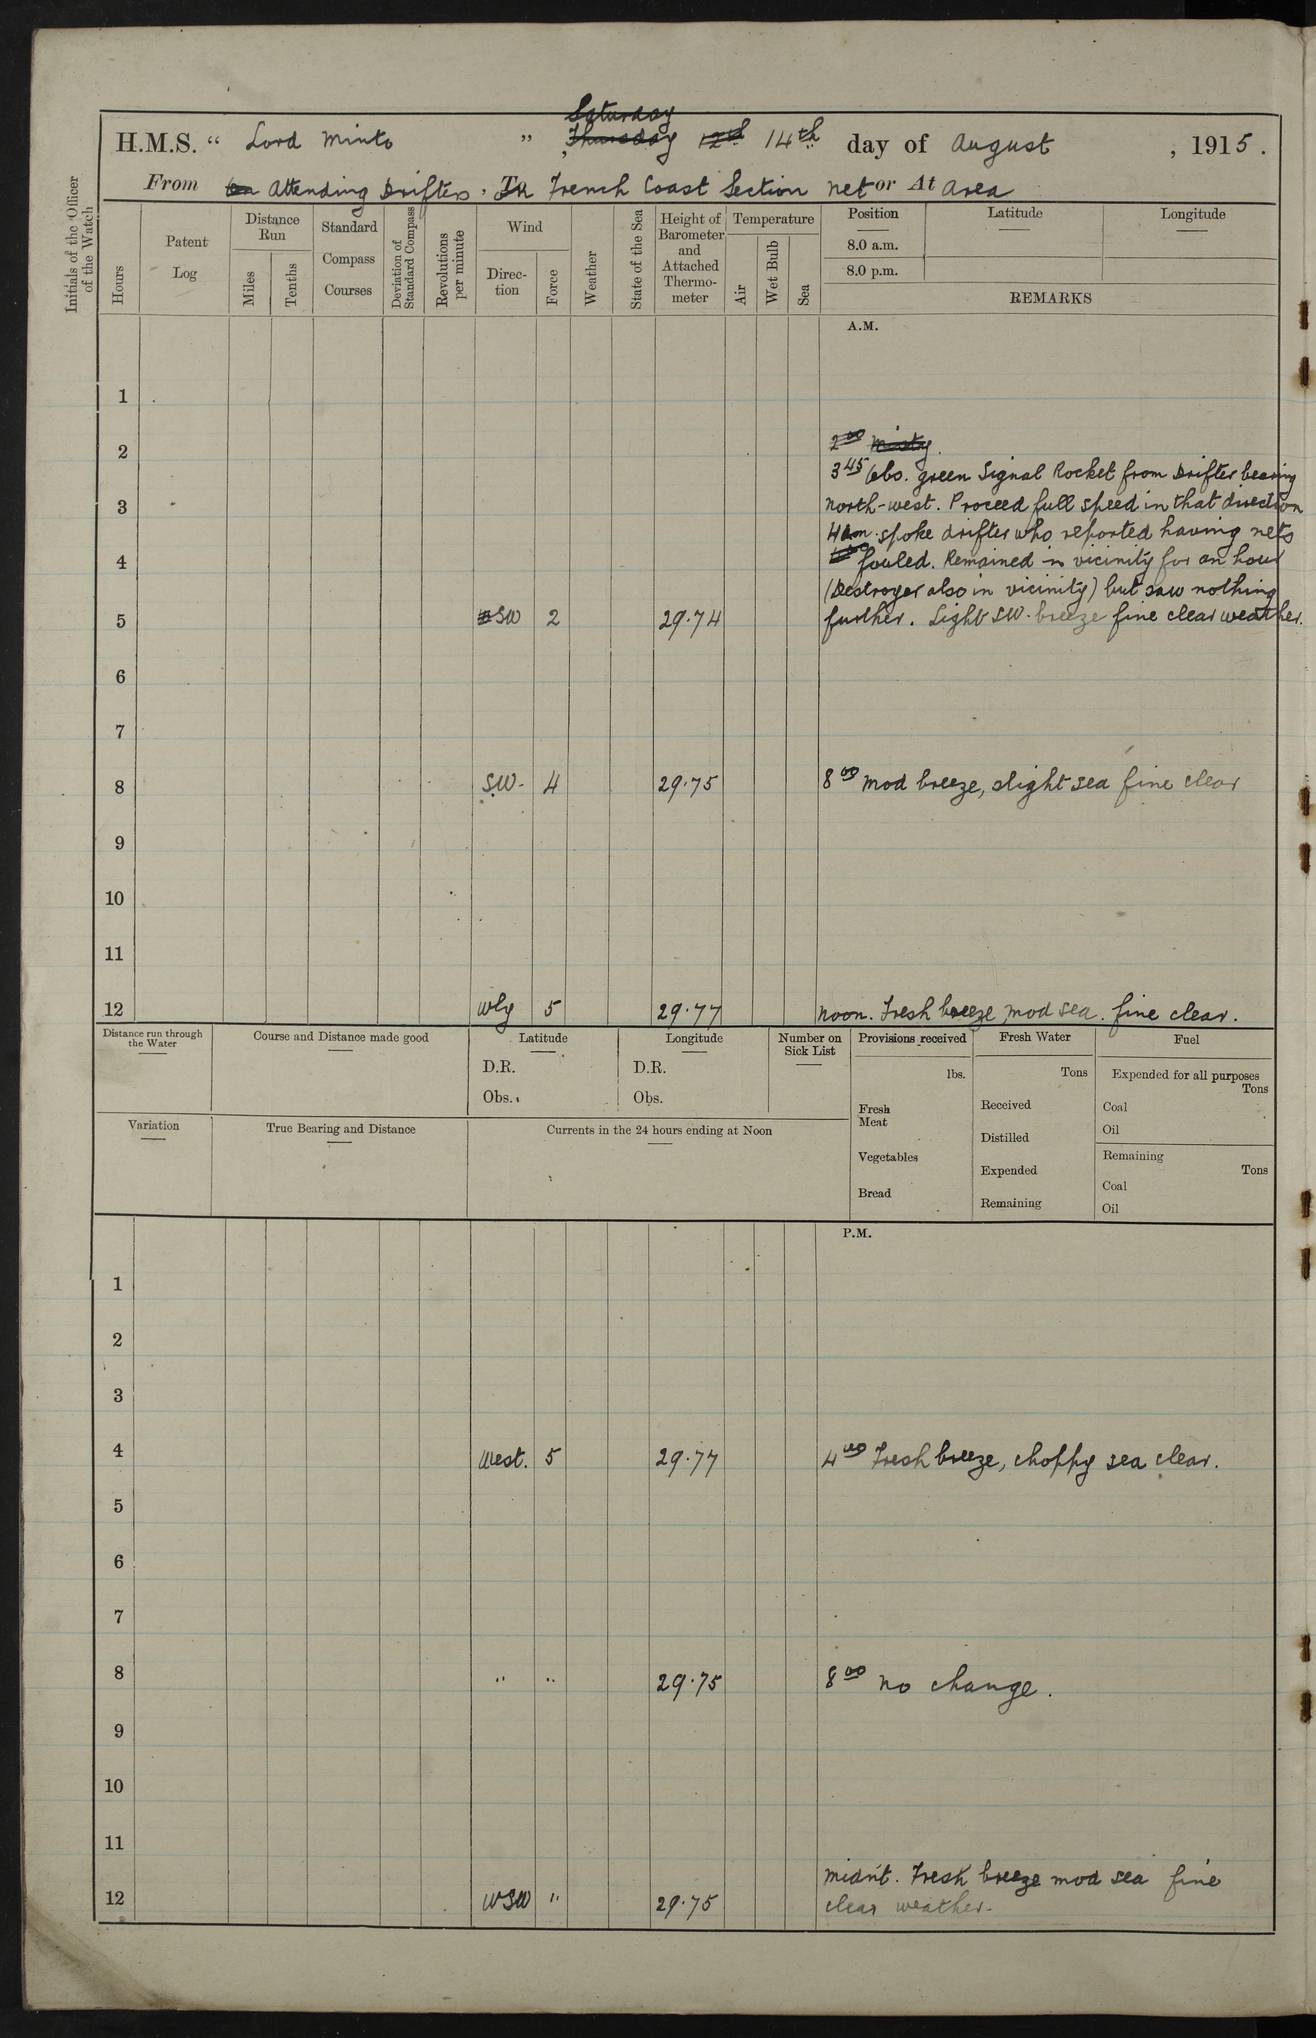 Saturday
H.M.S. “ Lord Minto ” , Thursday 12th 14th day of August , 1915 .
From on Attending Drifters . In French Coast Section net or At area
Initials of the Officer of the Watch
Hours
Patent Log
Distance Run
Miles
Tenths
Standard Compass Courses
Deviation of Standard Compass
Revolutions per minute
Wind
Direc-tion
Force
Weather
State of the Sea
Height of Barometer and Attached Thermo-meter
Temperature
Air
Wet Bulb
Sea
Position Latitude Longitude
8.0 a.m.
8.0 p.m.
REMARKS
A.M.
1
2 2 00 Misty.
3 45 Obs. green Signal Rocket from Drifter bearing
3 north-west. Proceed full speed in that direction
4 am. spoke drifter who reported having nets
4 fouled. Remained in vicinity for an hour
(Destroyer also in vicinity) but saw nothing
5 SW 2 29.74 further. Light SW. breeze fine clear weather.
6
7
8 SW. 4 29.75 8 00 Mod breeze, slight sea fine clear
9
10
11
12 Wly 5 29.77 Noon. Fresh breeze mod sea. fine clear.
Distance run through the Water
Course and Distance made good
Latitude
D.R.
Obs.
Longitude
D.R.
Obs.
Number on Sick List
Provisions received
lbs.
Fresh Meat
Vegetables
Bread
Fresh Water
Tons
Received
Distilled
Expended
Remaining
Fuel
Expended for all purposes
Tons
Coal
Oil
Remaining
Tons
Coal
Oil
Variation
True Bearing and Distance
Currents in the 24 hours ending at Noon
P.M.
1
2
3
4 West. 5 29.77 4 00 Fresh breeze, choppy sea clear.
5
6
7
8 " " 29.75 8 00 no change.
9
10
11
midn't. Fresh breeze mod sea fine
12 WSW " 29.75 clear weather.